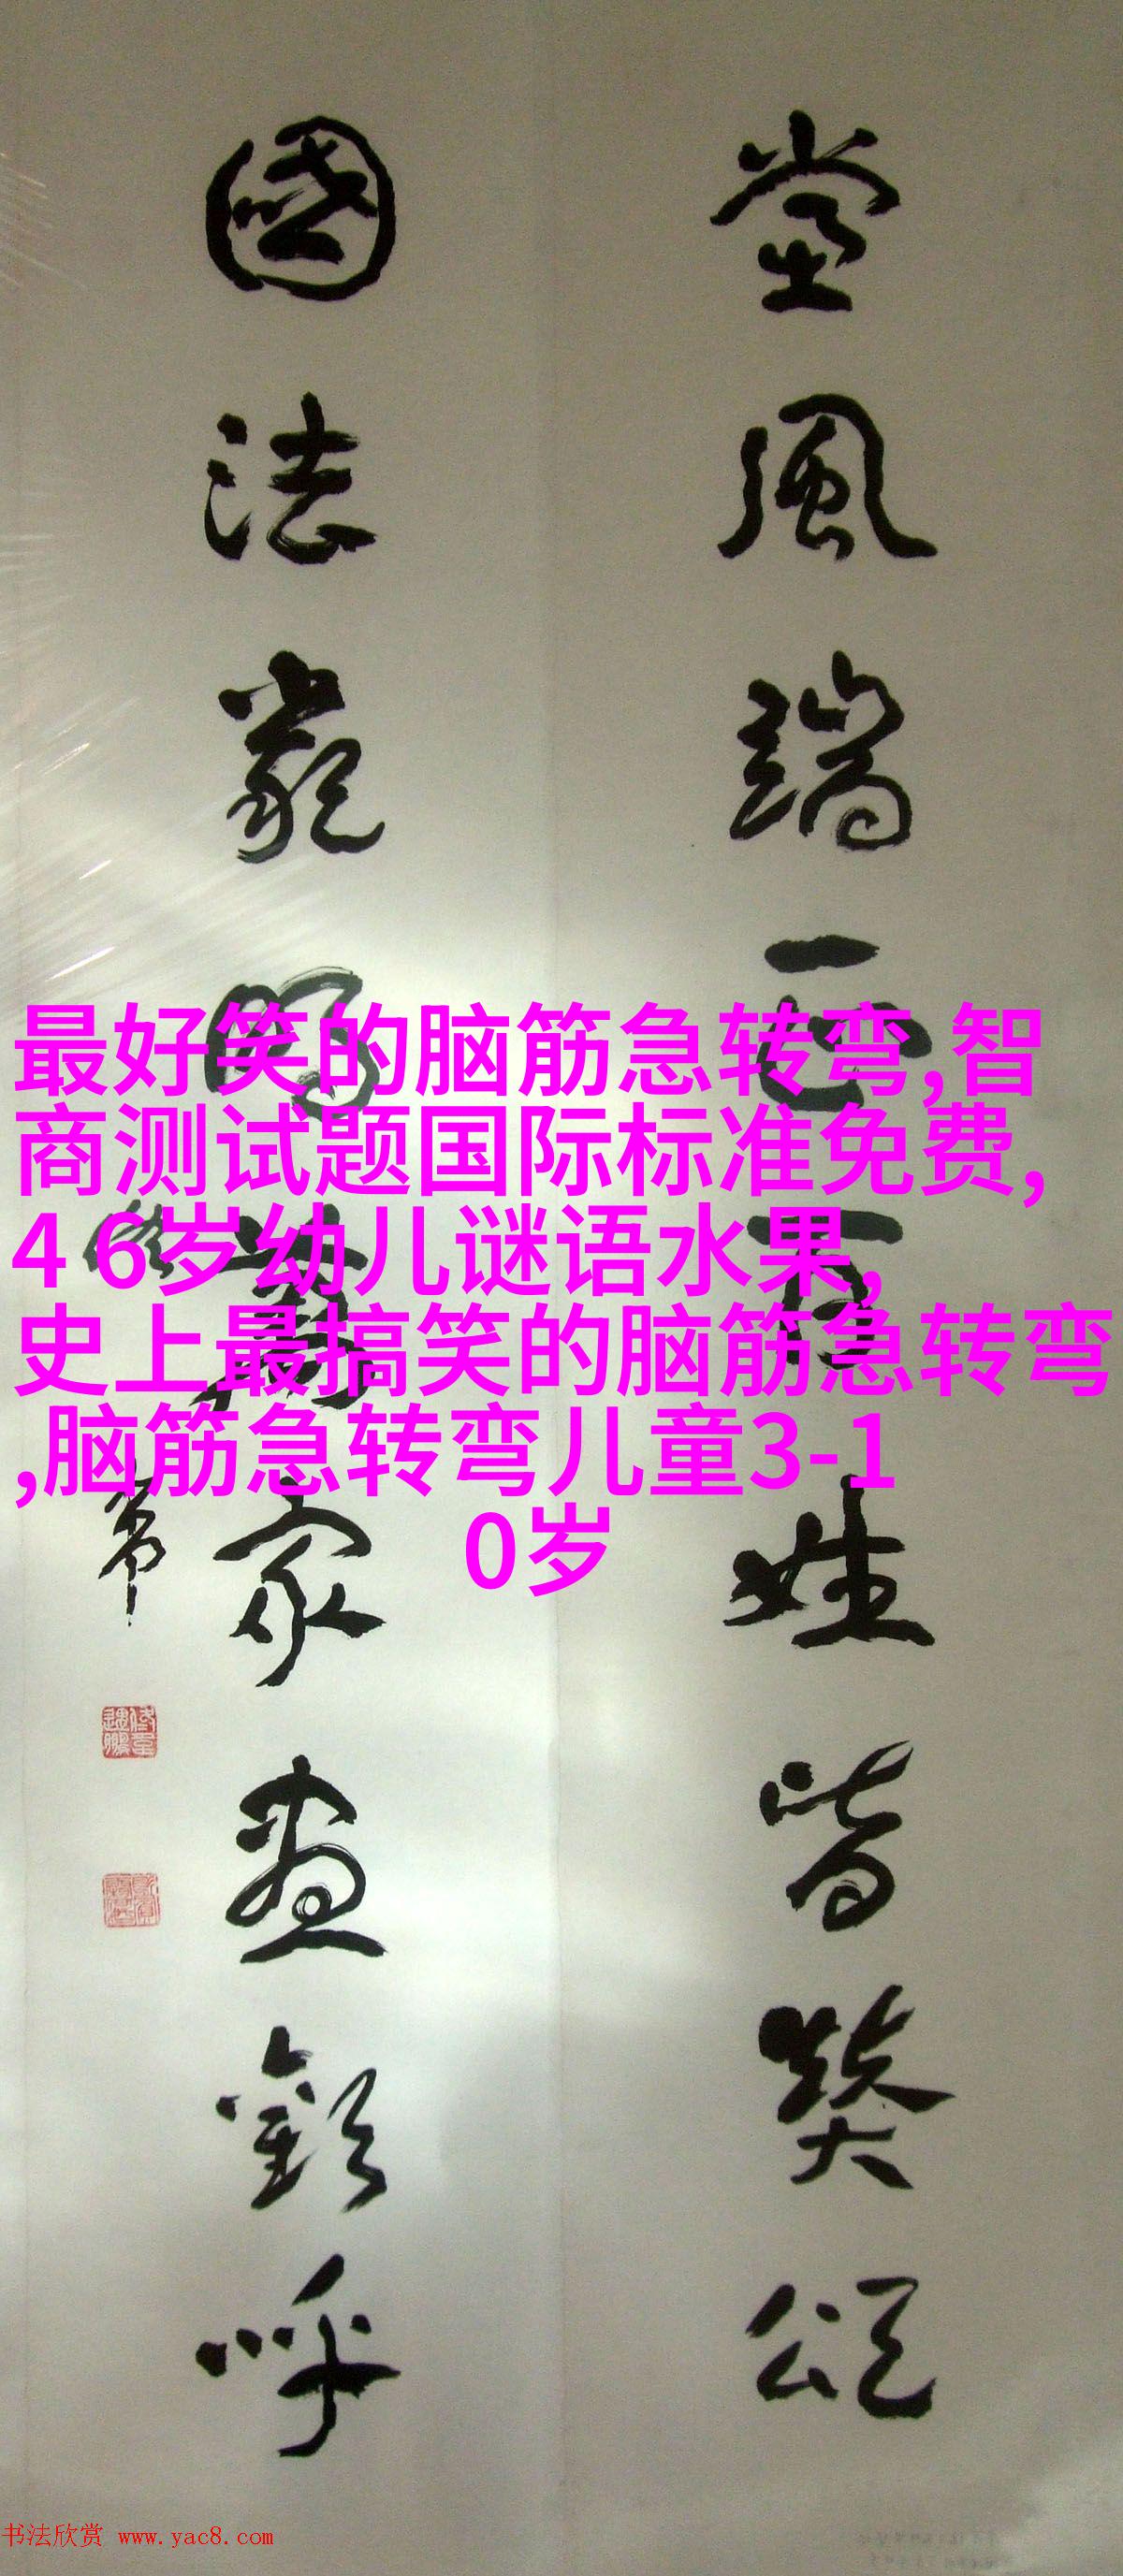 党風端正百姓皆獎頌
國法嚴明萬家盡歡呼
最好笑的脑筋急转弯,智
商测试题国际标准免费,
4 6岁幼儿谜语水果,
史上最搞笑的脑筋急转弯
,脑筋急转弯儿童3-1
0岁
书法欣赏 www.yac8.com